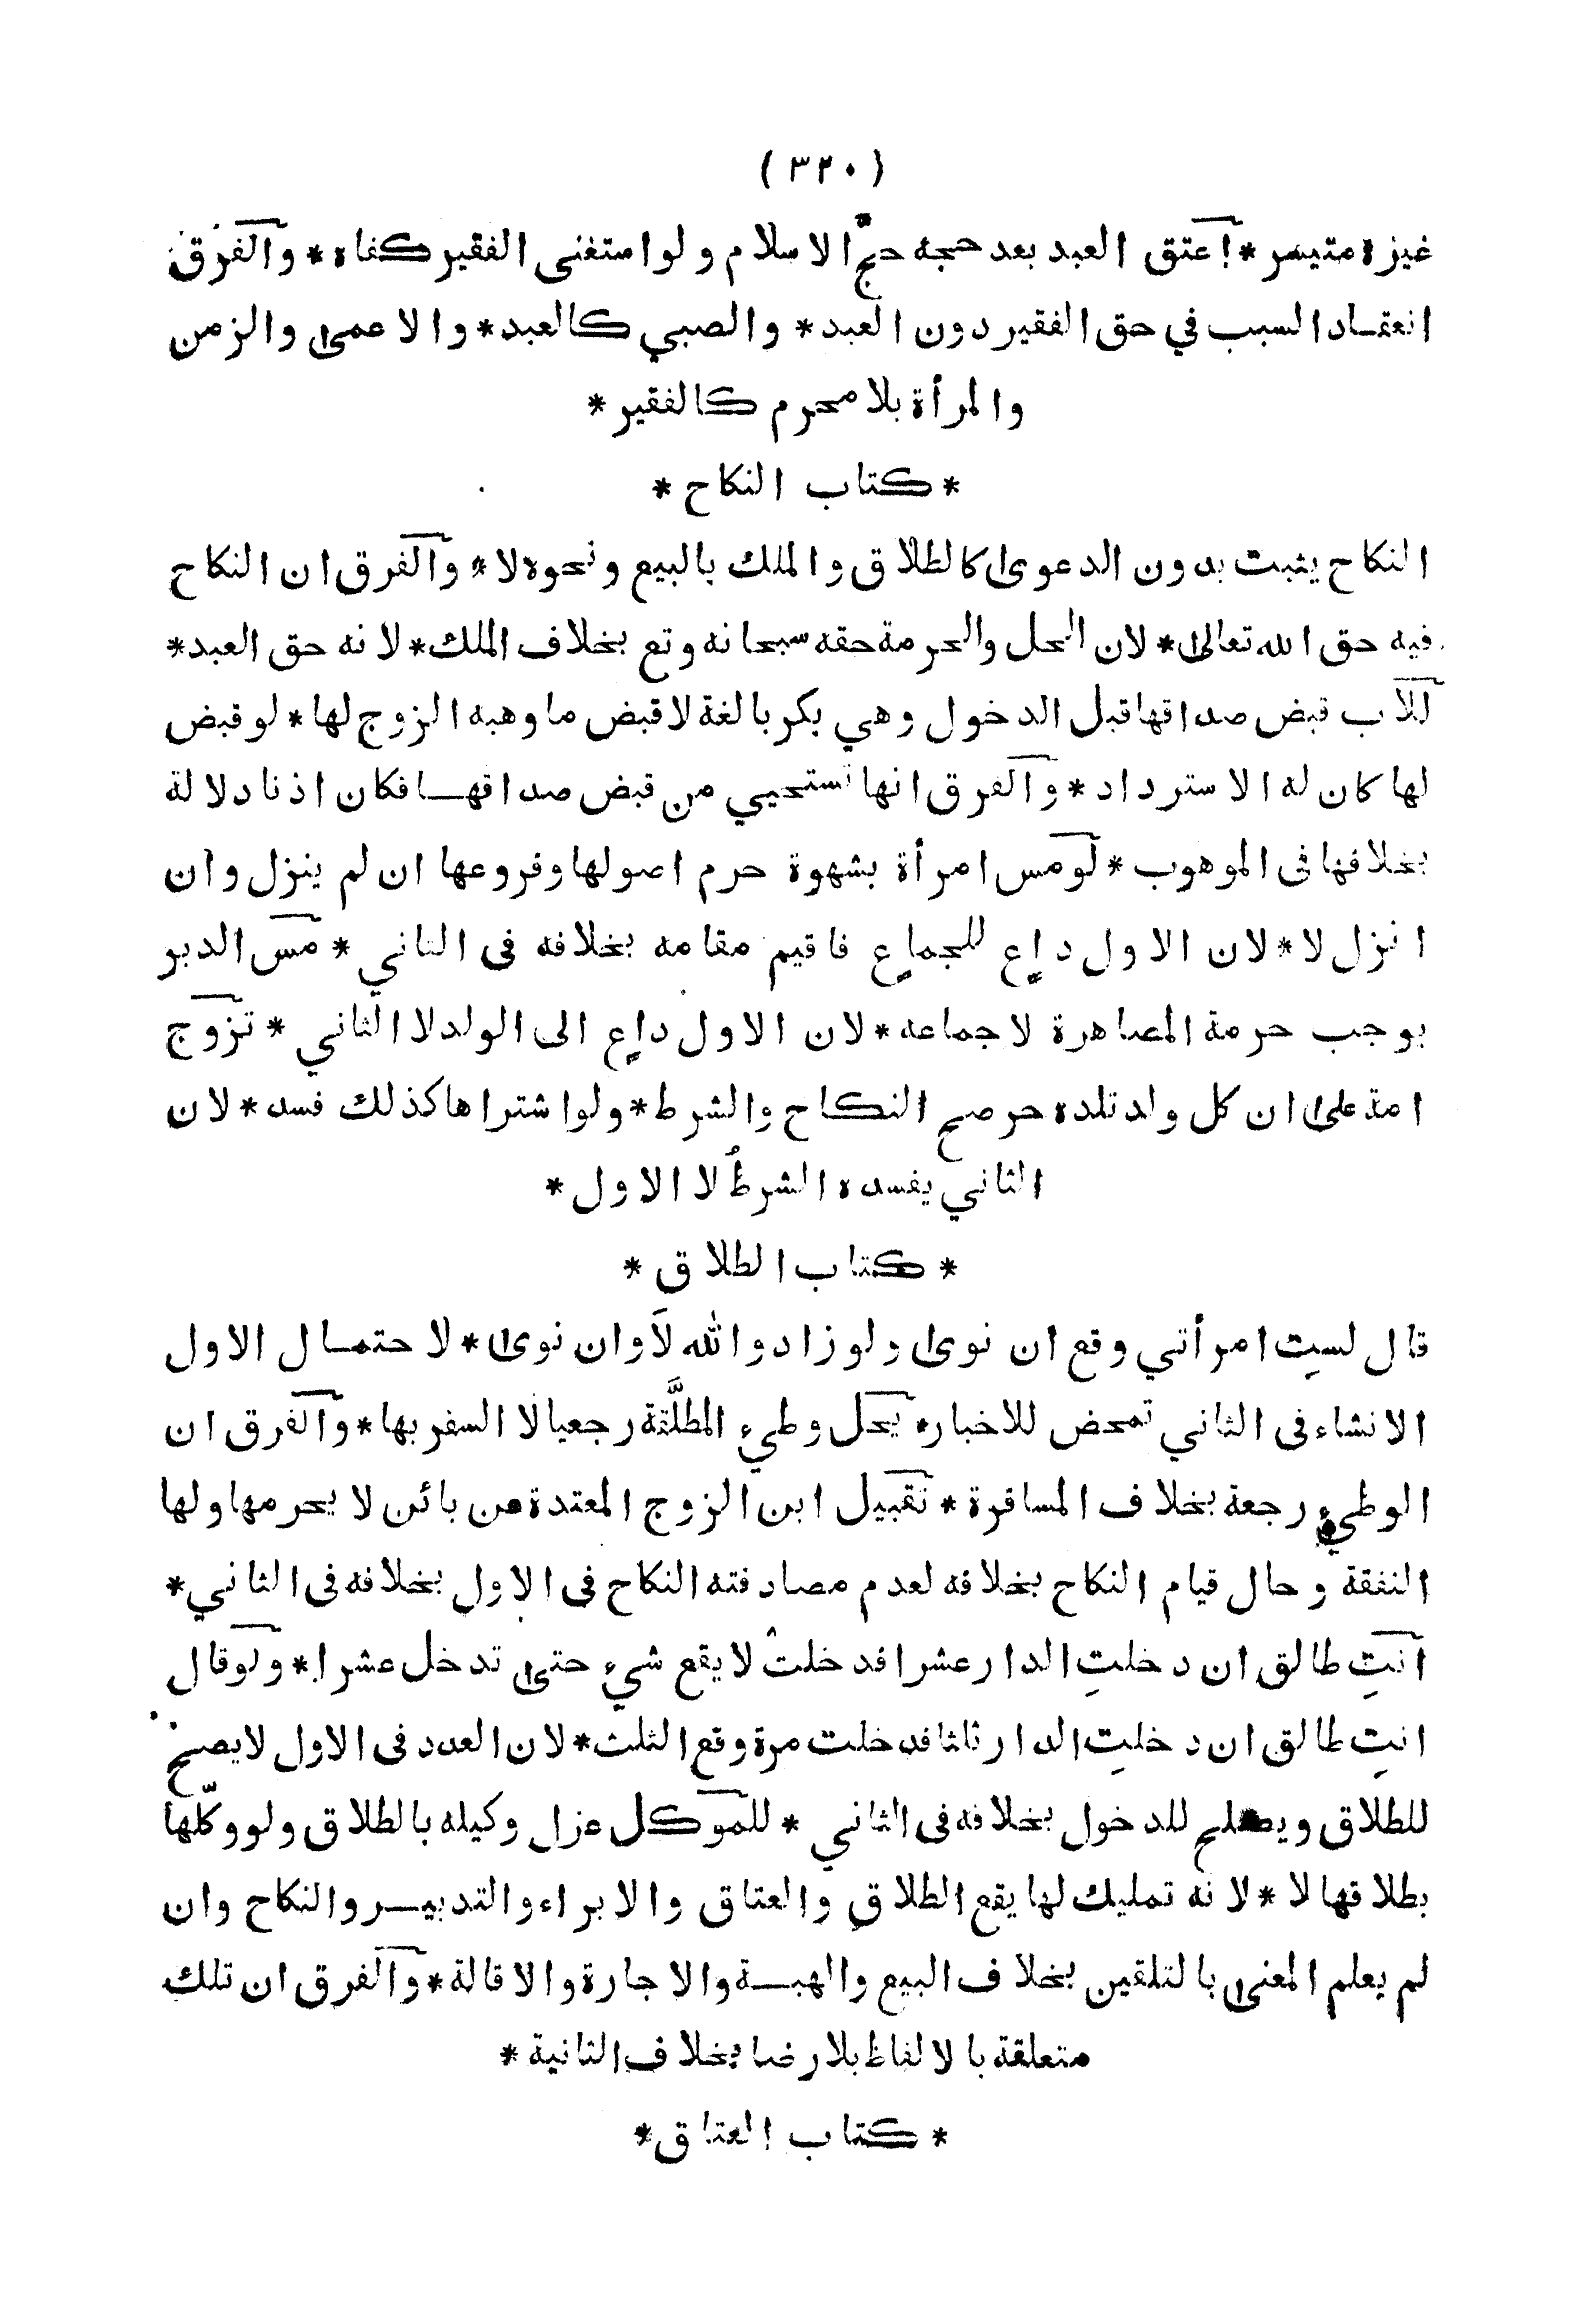 (٣٢٠)
غيره متيسر * اعتق العبد بعد حجه حج الاسلام ولو استغنى الفقير كفاه * والفرق
انعقاد السبب في حق الفقير دون العبد * والصبي كالعبد * والاعمى والزمن
والمرأة بلا محرم كالفقير *
* كتاب النكاح *
النكاح يثبت بدون الدعوى كالطلاق والملك بالبيع ونحوه لا * والفرق ان النكاح
فيه حق الله تعالى * لان الحل والحرمة حقه سبحانه وتع بخلاف الملك * لانه حق العبد *
للاب قبض صداقها قبل الدخول وهي بكر بالغة لا قبض ما وهبه الزوج لها * لو قبض
لها كان له الاسترداد * والفرق انها تستحيي من قبض صداقها فكان اذنا دلالة
بخلافها في الموهوب * لو مس امرأة بشهوة حرم اصولها وفروعها ان لم ينزل وان
انزل لا * لان الاول داعٍ للجماعٍ فاقيم مقامه بخلافه فى الثاني * مس الدبر
يوجب حرمة المصاهرة لا جماعه * لان الاول داعٍ الى الولد لا الثاني * تزوج
امة على ان كل ولد تلده حر صح النكاح والشرط * ولو اشتراها كذلك فسد * لان
الثاني يفسده الشرطُ لا الاول *
* كتاب الطلاق *
قال لستِ امرأتي وقع ان نوى ولو زاد والله لَا وان نوى * لاحتمال الاول
الانشاء فى الثاني تمحض للاخبار * يحل وطيء المطلَّقة رجعيا لا السفر بها * والفرق ان
الوطيء رجعة بخلاف المسافرة * تقبيل ابن الزوج المعتدة من بائن لا يحرمها ولها
النفقة وحال قيام النكاح بخلافه لعدم مصادفته النكاح فى الاول بخلافه فى الثاني *
انتِ طالق ان دخلتِ الدار عشرا فدخلتْ لا يقع شيء حتى تدخل عشرا * ولو قال
انتِ طالق ان دخلتِ الدار ثلثا فدخلت مرة وقع الثلث * لان العدد فى الاول لا يصلح
للطلاق ويصلح للدخول بخلافه فى الثاني * للموكل عزل وكيله بالطلاق ولو وكّلها
بطلاقها لا * لانه تمليك لها يقع الطلاق والعتاق والابراء والتدبير والنكاح وان
لم يعلم المعنى بالتلقين بخلاف البيع والهبة والاجارة والاقالة * والفرق ان تلك
متعلقة بالالفاظ بلا رضا بخلاف الثانية *
* كتاب العتاق *